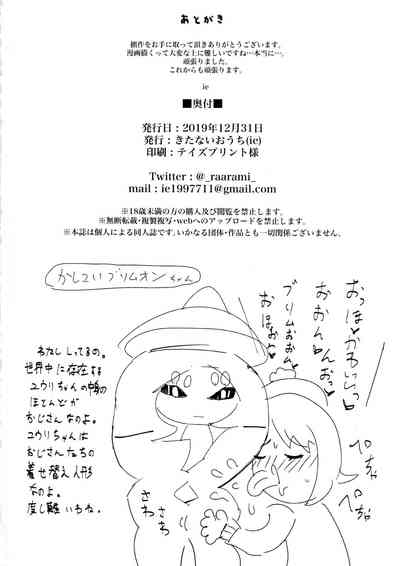 あとがき
拙作をお手に取って頂きありがとうございます。
漫画描くって大変な上に難しいですね…本当に…。
頑張りました。
これからも頑張ります。
ie
■奥付■
発行日：2019年12月31日
発行：きたないおうち(ie)
印刷：テイズプリント様
Twitter：@_raarami_
mail：ie1997711@gmail.com
※18歳未満の方の購入及び閲覧を禁止します。
※無断転載・複製複写・webへのアップロードを禁止します。
※本誌は個人による同人誌です。いかなる団体・作品とも一切関係ございません。
かしこいブリムオンちゃん
おっほ
かわいいっ
おおん
おっ
ブリムおおム
おほぉ
わたし しってるの。
世界中に存在する
ユウリちゃんの中身の
ほとんどが
おじさんなのよ。
ユウリちゃんは
おじさんたちの
着せ替え人形
なのよ。
度し難いわね。
さわ
さわ
ペちゃ
ペちゃ